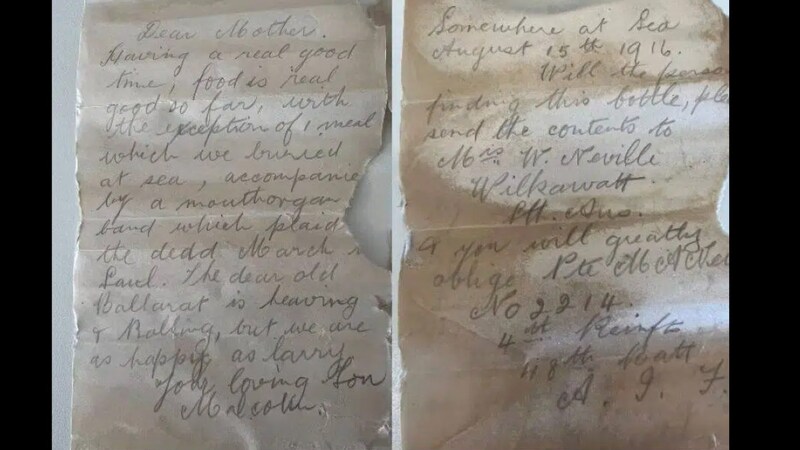 Dear Mother.
Having a real good
time, food is real
good so far, with
the exception of 1 meal
which we buried
at sea, accompanie
by a mouthorgan
band which plaid
the dedd March
Saul. The dear old
Ballarat is heaving
& Rolling, but we are
as happy as larry
Your loving Son
Malcolm.
Somewhere at Sea
August 15th 1916.
Will the perso
finding this bottle, ple
send the contents to
W. Neville
Wilkawatt
Sth. Aus.
& you will greatly
oblige Pte M A Ne
No 2214.
4 Reinft
48th Batt
A. I. F.